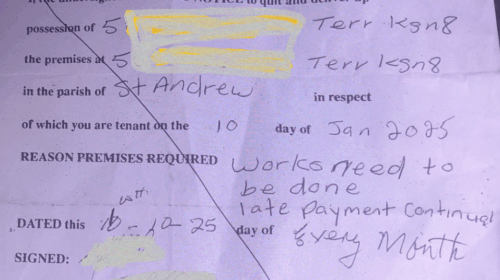 NOTICE to quit and deliver up
possession of 5 Terr Kgn8
the premises at 5 Terr Kgn8
in the parish of St Andrew in respect
of which you are tenant on the 10 day of Jan 2025
REASON PREMISES REQUIRED Works need to
be done
late Payment Continual
DATED this 10-25 day of Every Month
SIGNED: